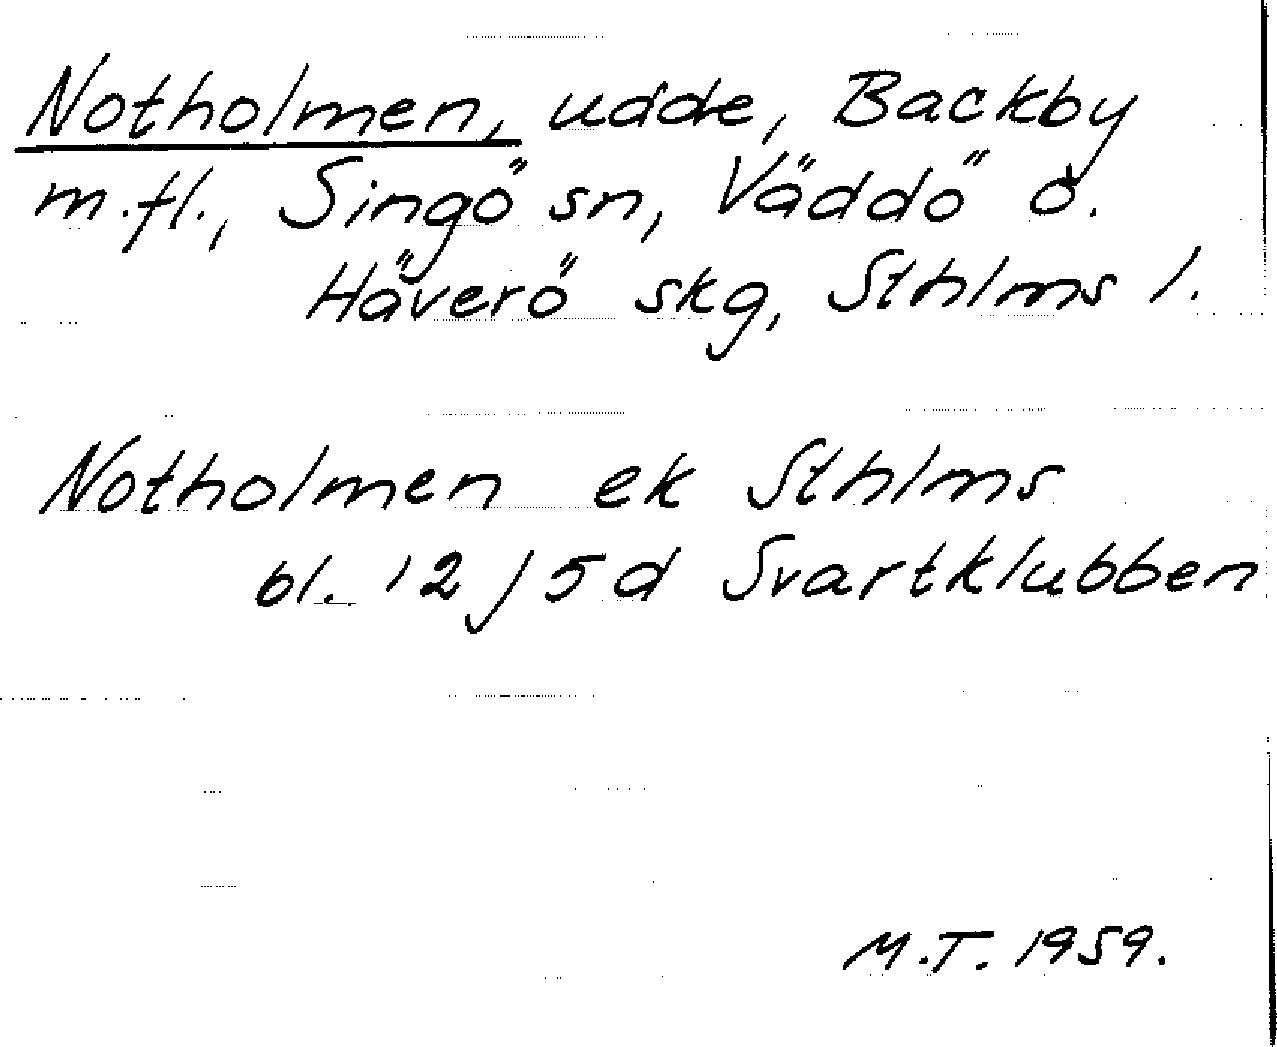 Notholmen, udde, Backby
m.fl., Singö sn, Väddö o.
Häverö skg, Sthlms l.
Notholmen ek Sthlms
bl. 12 / 5 d Svartklubben
M.T. 1959.